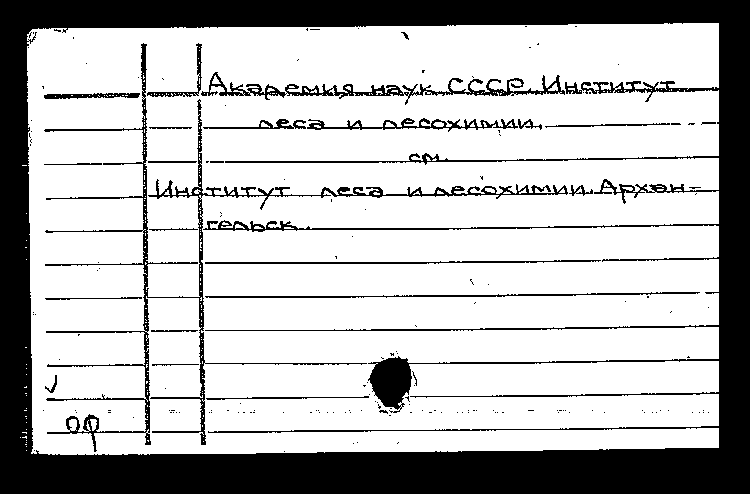 Академия наук СССР. Институт
леса и лесохимии.
см.
Институт леса и лесохимии. Архан=
гельск.